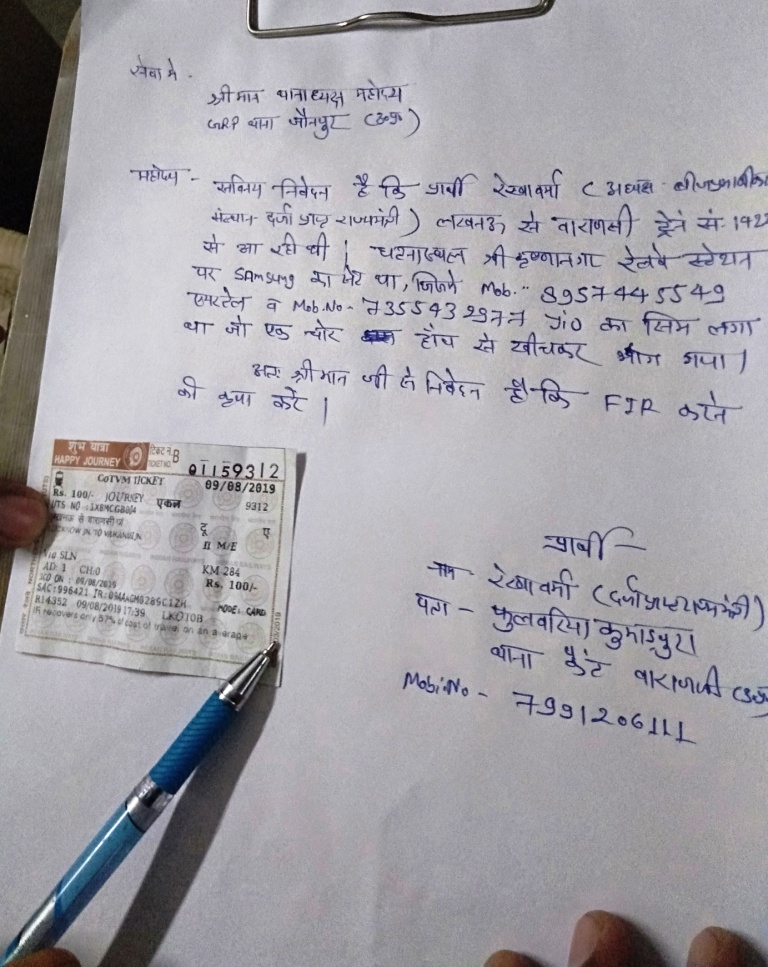 सेवा मे.
श्रीमान थानाध्यक्ष महोदय
GRP थाना जौनपुर (उ०प्र०)
महोदय - सविनय निवेदन है कि प्रार्थी रेखा वर्मा ( अध्यक्ष
संस्थान दर्जा प्राप्त राज्यमंत्री ) लखनऊ से वाराणसी ट्रेन सं. 1422
से आ रही थी | घटनास्थल श्री कृष्णानगर रेलवे स्टेशन
पर Samsung का सेट था, जिसमे Mob.- 8957445549
एयरटेल व Mob.No- 7355432977 Jio का सिम लगा
था जो एक चोर हाँथ से खीचकर भाग गया |
अतः श्रीमान जी से निवेदन है कि FIR करने
की कृपा करें |
शुभ यात्रा
HAPPY JOURNEY
टिकट नं. B
TICKET NO.
01159312
CoTVM TICKET
09/08/2019
Rs. 100/- JOURNEY एकल
9312
UTS NO :1XBMCGB004
लखनऊ से वाराणसी जं
LUCKNOW JN TO VARANASI JN
दू ए
II M/E
Via SLN
KM 284
AD: 1 CH:0
Rs. 100/-
JCO ON : 09/08/2019
SAC:996421 IR:09AAAGM0289C1ZH
MODE: CARD
R14352 09/08/2019 17:39 LKOT0B
IR recovers only 57% of cost of travel on an average
प्रार्थी
नाम - रेखा वर्मा (दर्जा प्राप्त राज्यमंत्री)
पता - फुलवरिया
थाना कैंट वाराणसी (उ०प्र०)
Mobi:No - 7991206111